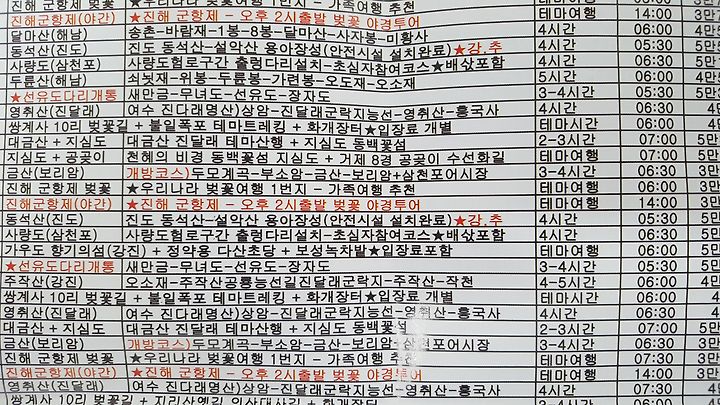 진해 군항제 벚꽃 ★우리나라 벚꽃여행 1번지 - 가족여행 추천 테마여행 06:00 3만
진해군항제(야간) ★진해 군항제 - 오후 2시출발 벚꽃 야경투어 테마여행 14:00 3만
달마산(해남) 송촌-바람재-1봉-8봉-달마산-사자봉-미황사 4시간 06:00 4만
동석산(진도) 진도 동석산-설악산 용아장성(안전시설 설치완료)★강.추 4시간 05:30 5만
사량도(삼천포) 사량도험로구간 출렁다리설치-초심자참여코스★배삯포함 4시간 06:30 5만
두륜산(해남) 쇠노재-위봉-두륜봉-가련봉-오도재-오소재 5시간 06:00 4만
★선유도다리개통 새만금-무녀도-선유도-장자도 3-4시간 05:30 5만
영취산(진달래) 여수 진다래명산)상암-진달래군락지능선-영취산-흥국사 4시간 06:30 4만
쌍계사 10리 벚꽃길 + 불일폭포 테마트레킹 + 화개장터★입장료 개별 테마시간 06:00 4만
대금산 + 지심도 대금산 진달래 테마산행 + 지심도 동백꽃섬 2-3시간 07:00 5만
지심도 + 공곶이 천혜의 비경 동백꽃섬 지심도 + 거제 8경 공곶이 수선화길 테마여행 07:00 5만
금산(보리암) 개방코스)두모계곡-부소암-금산-보리암+삼천포어시장 3-4시간 06:30 4만
진해 군항제 벚꽃 ★우리나라 벚꽃여행 1번지 - 가족여행 추천 테마여행 06:00 3만
진해군항제(야간) ★진해 군항제 - 오후 2시출발 벚꽃 야경투어 테마여행 14:00 3만
동석산(진도) 진도 동석산-설악산 용아장성(안전시설 설치완료)★강.추 4시간 05:30 5만
사량도(삼천포) 사량도험로구간 출렁다리설치-초심자참여코스★배삯포함 4시간 06:30 5만
가우도 향기의섬(강진) + 정약용 다산초당 + 보성녹차밭★입장료포함 테마여행 06:00 5만
★선유도다리개통 새만금-무녀도-선유도-장자도 3-4시간 05:30 5만
주작산(강진) 오소재-주작산공룡능선길진달래군락지-주작산-작천 4-5시간 06:00 4만
쌍계사 10리 벚꽃길 + 불일폭포 테마트레킹 + 화개장터★입장료 개별 테마시간 06:00 4만
영취산(진달래) 여수 진다래명산)상암-진달래군락지능선-영취산-흥국사 4시간 06:30 4만
대금산 + 지심도 대금산 진달래 테마산행 + 지심도 동백꽃섬 2-3시간 07:00 5만
금산(보리암) 개방코스)두모계곡-부소암-금산-보리암+삼천포어시장 3-4시간 06:30 4만
진해 군항제 벚꽃 ★우리나라 벚꽃여행 1번지 - 가족여행 추천 테마여행 07:30 3만
진해군항제(야간) ★진해 군항제 - 오후 2시출발 벚꽃 야경투어 테마여행 14:00 3만
영취산(진달래) 여수 진다래명산)상암-진달래군락지능선-영취산-흥국사 4시간 06:30 4만
쌍계사 10리 벚꽃길 + 지리산옛길 의신대사길 + 화개장터 3-4시간 06:00